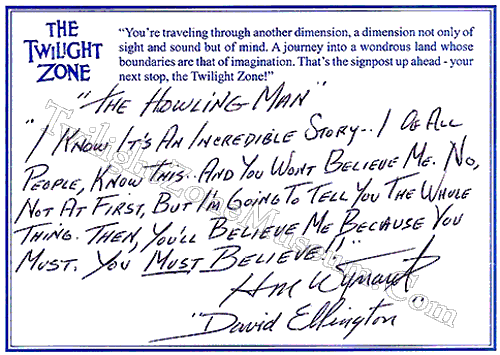 THE
TWILIGHT
ZONE
"You're traveling through another dimension, a dimension not only of
sight and sound but of mind. A journey into a wondrous land whose
boundaries are that of imagination. That's the signpost up ahead - your
next stop, the Twilight Zone!"
"THE HOWLING MAN"
"I KNOW IT'S AN INCREDIBLE STORY.. I OF ALL
PEOPLE, KNOW THIS.. AND YOU WON'T BELIEVE ME. NO,
NOT AT FIRST, BUT I'M GOING TO TELL YOU THE WHOLE
THING. THEN, YOU'LL BELIEVE ME BECAUSE YOU
MUST. YOU MUST BELIEVE!!"
HM Wynant
"David Ellington"
TwilightZoneMuseum.Com